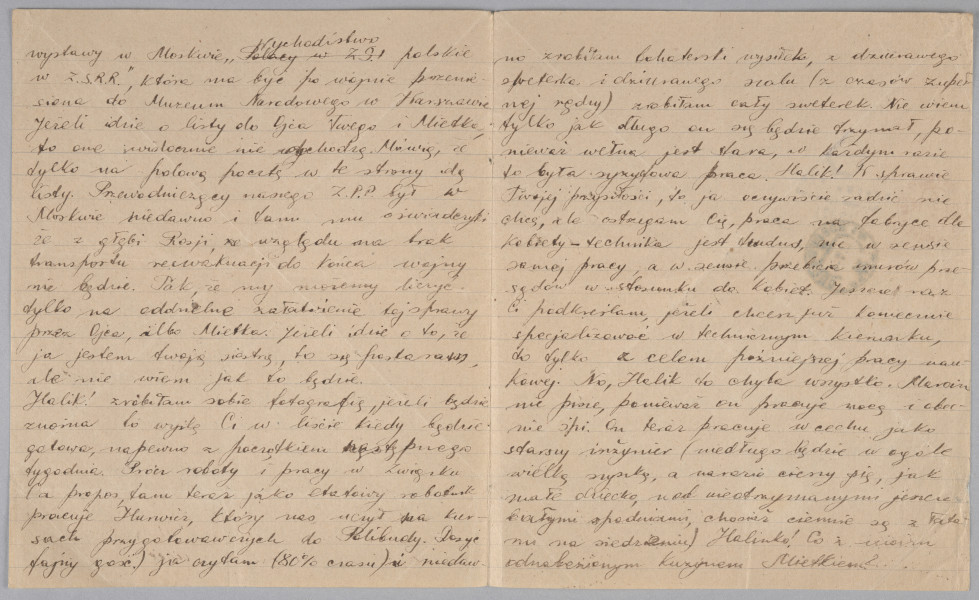 wystawy w Moskwie „Wychodźstwo polskie
w Z.S.R.R.", która ma być po wojnie przenie-
siona do Muzeum Narodowego w Warszawie
Jeżeli idzie o listy do Ojca Twego i Mietka,
to one widocznie nie dochodzą. Mówią, że
tylko na polową pocztę w te strony idą
listy. Przewodniczący naszego Z.P.P był w
Moskwie niedawno i tam mu oświadczyli
że z głębi Rosji, ze względu na brak
transportu reewakuacji do końca wojny
nie będzie. Tak, że my możemy liczyć
tylko na oddzielne załatwienie tej sprawy
przez Ojca, albo Mietka. Jeżeli idzie o to, że
ja jestem twoją siostrą, to się postaram,
ale nie wiem jak to będzie.
Halik! zrobiłam sobie fotografię, jeżeli będzie
znośna to wyślę Ci w liście kiedy będzie
gotowa, napewno z początkiem następnego
tygodnia. Prócz roboty i pracy w Związku
(a propos, tam teraz jako etatowy robotnik
pracuje Hurwicz, który nas uczył na kur-
sach przygotowawczych do Polibudy. Dosyć
fajny gość.) ja czytam (80% czasu) i niedaw-
no zrobiłam bohaterski wysiłek, z dziurawego
sweterka i dziurawego szalu (z czasów zupeł-
nej nędzy) zrobiłam cały sweterek. Nie wiem
tylko jak długo on się będzie trzymał, po-
nieważ wełna jest stara, w każdym razie
to była syzyfowa praca. Halik! W sprawie
Twojej przyszłości, to ja oczywiście radzić nie
chcę, ale ostrzegam Cię, praca na fabryce dla
kobiety-technika jest trudna, nie w sensie
samej pracy, a w sensie przebicia murów prze-
sądów w stosunku do kobiet. Jeszcze raz
Ci podkreślam, jeżeli chcesz już koniecznie
specjalizować w technicznym kierunku,
to tylko z celem późniejszej pracy nau-
kowej. No, Halik to chyba wszystko. Marcin
nie pisze, ponieważ on pracuje nocą i obec-
nie śpi. On teraz pracuje w cechu jako
starszy inżynier (niedługo będzie w ogóle
wielką szyszką, a narazie cieszy się, jak
małe dziecko nad nieotrzymanymi jeszcze
białymi spodniami, chociaż ciemne są z łata-
mi na siedzeniu) Halinko! Co z
odnalezionym kuzynem Mietkiem?